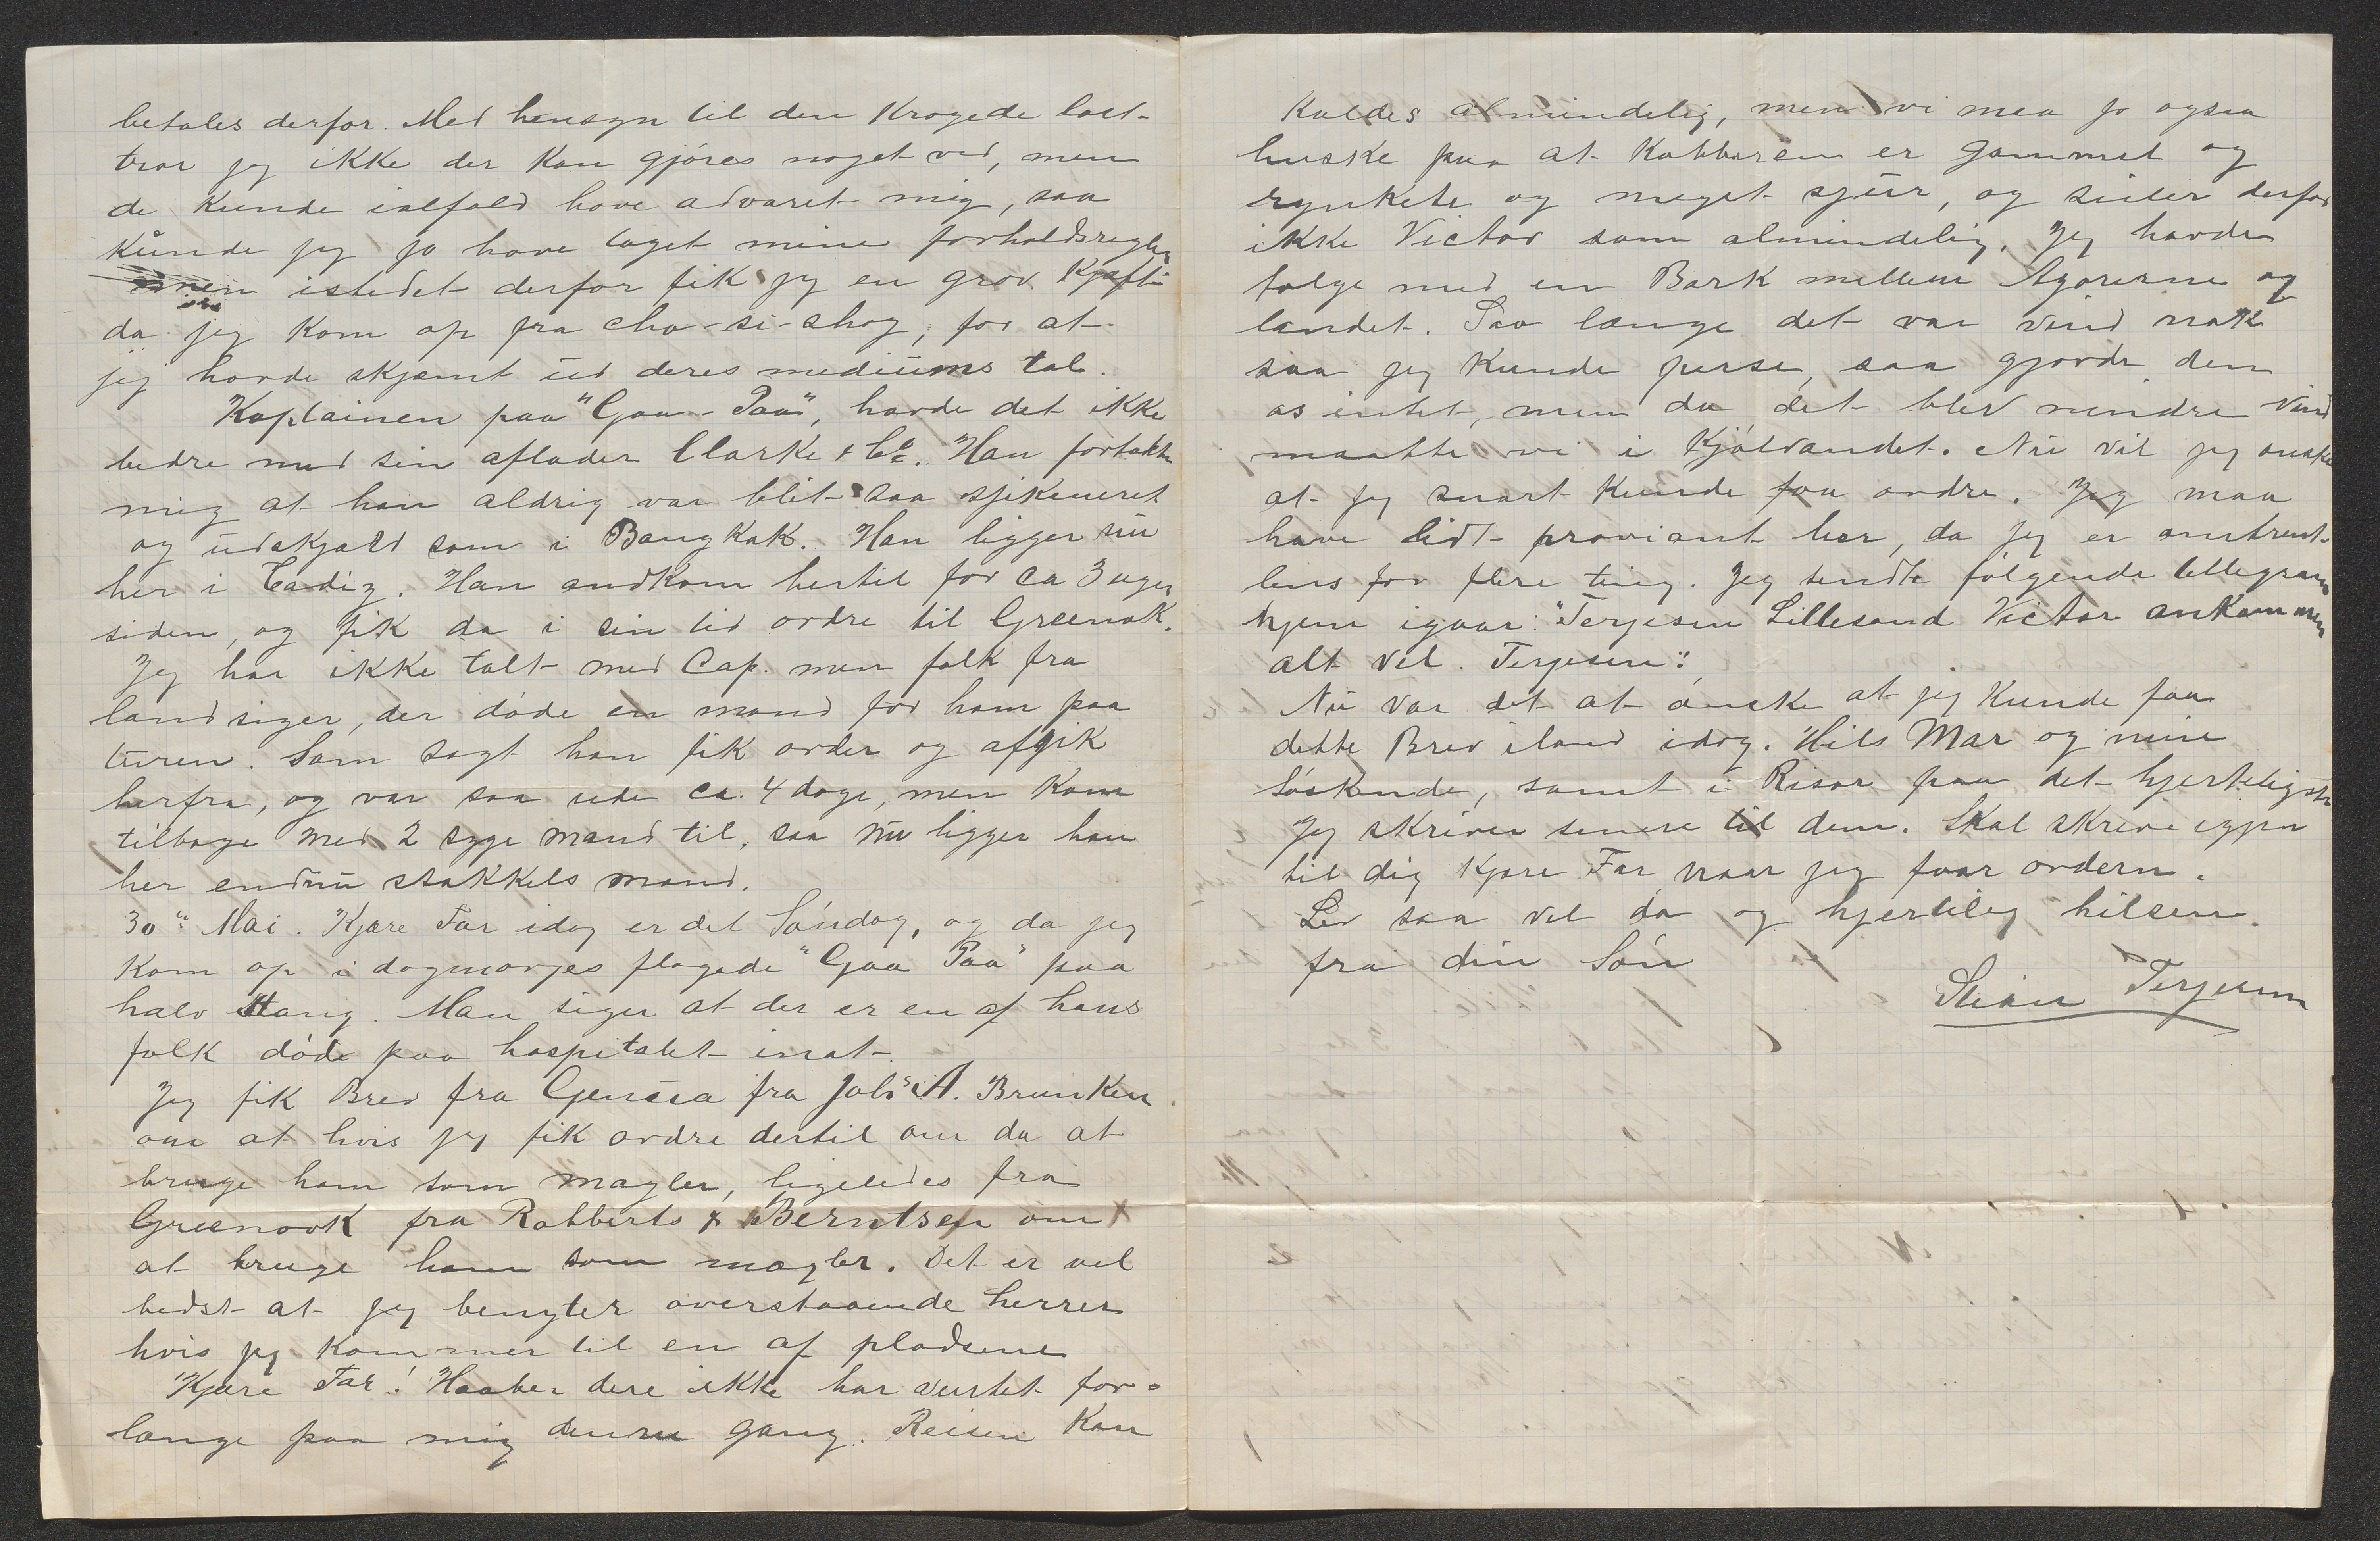 betales derfor. Med hensyn til den Krogede last-
tror jeg ikke der Kan gjöres noget ved, men
de Kunde ialfald have advaret mig, saa
Kunde jeg jo have taget mine forholdsregler
istedet derfor fik jeg en grov Kjæft
da jeg Kom op fra cho-si-chog, for at
jeg havde skjæmt ud deres mediums tal.
Kaptainen paa "Gaa-Paa", havde det ikke
bedre med sin aflader Clarke & Co. Han fortalte
mig at han aldrig var blit saa sjikaneret
og udskjæld som i Bangkok. Han ligger nu
her i Cadiz. Han andkom hertil for ca 3 uger
siden, og fik da i sin tid ordre til Greenok.
Jeg har ikke talt med Cap. men folk fra
land siger, der döde en mand for ham paa
turen. Som sagt han fik order og afgik
herfra, og var saa ude ca. 4 dage, men Kom
tilbage med 2 syge mand til, saa nu ligger han
her endnu stakkels mand.
30" Mai. Kjære Far idag er det Söndag, og da jeg
Kom op i dagmorges flagede "Gaa Paa" paa
halv stang. Man siger at der er en af hans
folk döde paa hospitalet inat.
Jeg fik Brev fra Genua fra Johs A. Brunken
om at hvis jeg fik ordre dertil om da at
bruge ham som mægler, ligeledes fra
Greenock fra Robberts & Berntsen om
at bruge ham som mægler. Det er vel
bedst at jeg benyter overstaaende herrer
hvis jeg Kommer til en af pladsene
Kjære Far! Haaber dere ikke har ventet for-
længe paa mig denne gang. Reisen Kan
Kaldes almindelig, men vi maa jo ogsaa
huske paa at Kobberen er gammel og
rynkete og meget sjur, og seiler derfor
ikke Victor som almindelig. Jeg havde
følge med en Bark mellem Azorerne og
landet. Saa længe det var vind nok
saa jeg Kunde perse, saa gjorde den
os intet, men da det blev mindre vind
maatte vi i Kjölvandet. Nu vil jeg önske
at jeg snart Kunde faa ordre. Jeg maa
have lidt proviant her, da jeg er omtrent
lens for flere ting. Jeg sendte fölgende tellegram
hjem igaar: "Terjesen Lillesand Victor ankommen
alt vel. Terjesen".
Nu var det at önske at jeg Kunde faa
dette Brev iland idag. Hils Mar og mine
Söskende, samt i Risør paa det hjerteligste
Jeg skriver senere til dem. Skal skrive igjen
til dig Kjære Far naar jeg faar ordern.
Lev saa vel da og hjertelig hilsen
fra din Sön
Stian Terjesen